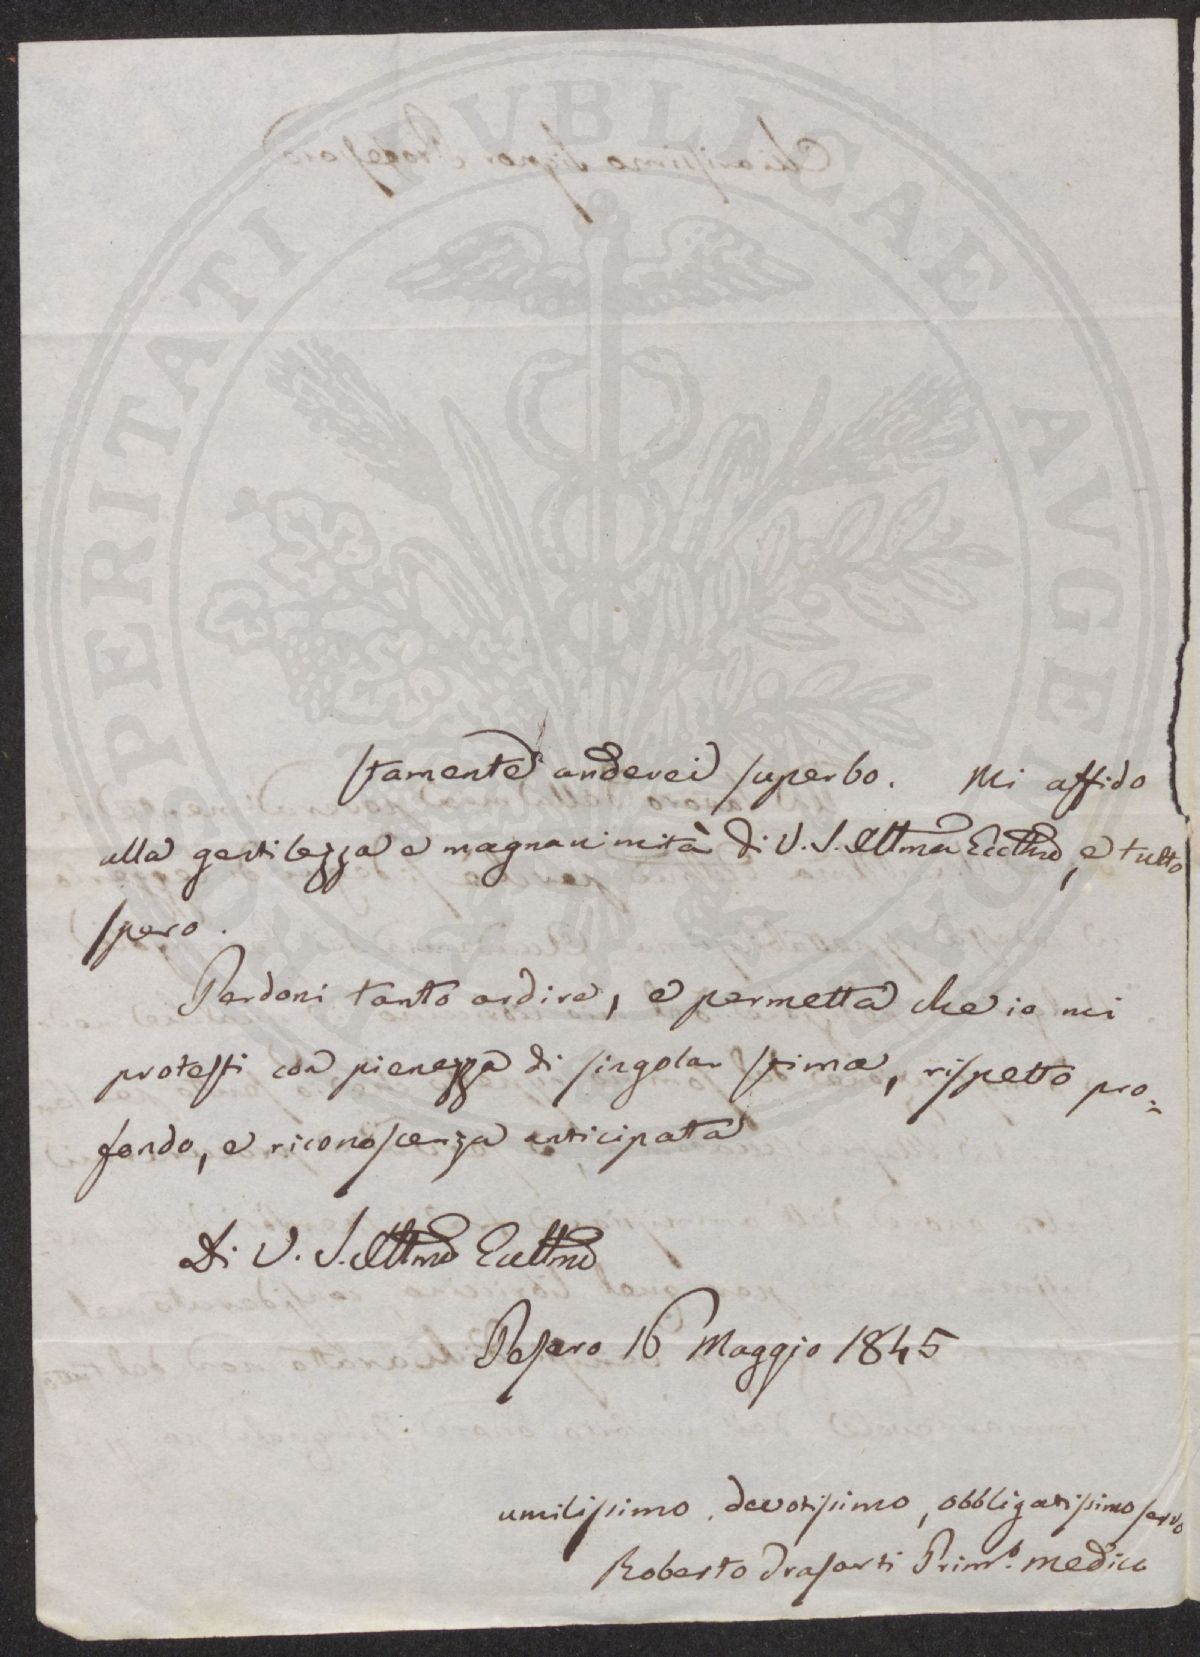 PROSPERITATI PUBLICAE AUGENDAE
stamente anderei superbo. Mi affido
alla gentilezza e magnanimità di V. S. Illma Ecclma, e tutto
spero.
Perdoni tanto ardire, e permetta che io mi
protesti con pienezza di singolar stima, rispetto pro=
fondo, e riconoscenza anticipata
Di V. S. Illma Ecclma
Pesaro 16 Maggio 1845
umilissimo, devotissimo, obbligatissimo servo
Roberto Medico